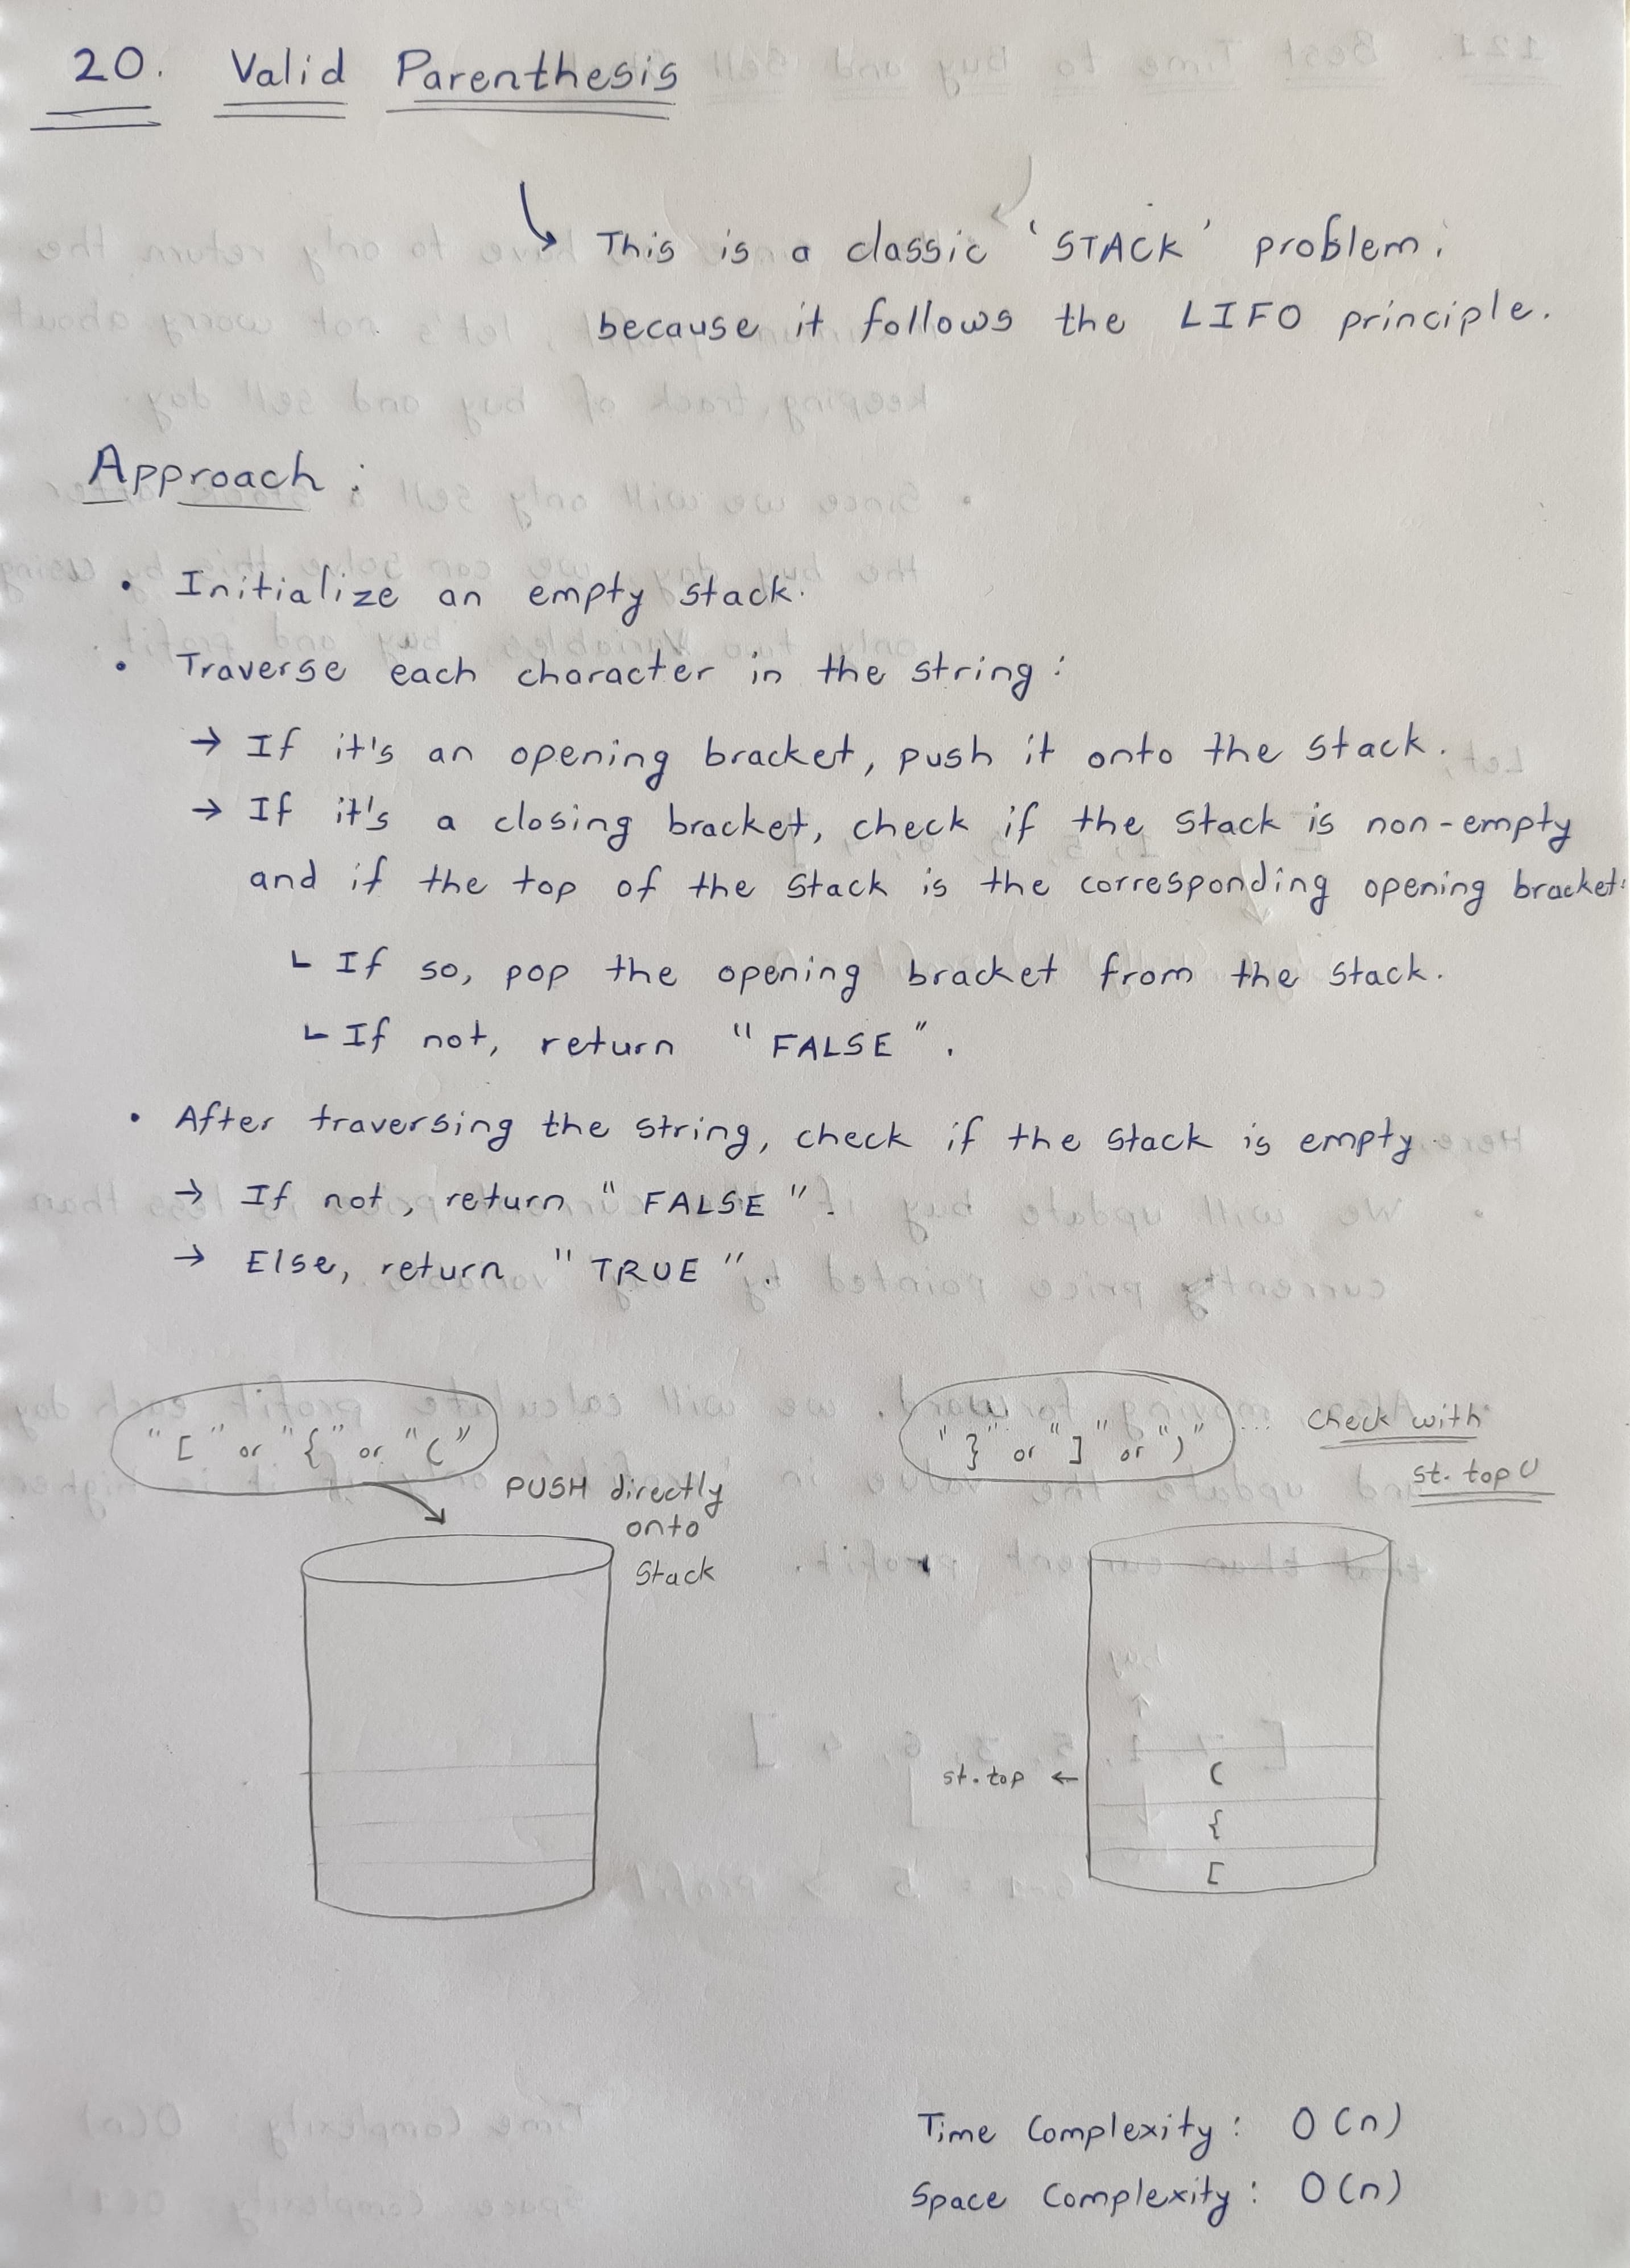 20. Valid Parenthesis
This is a classic 'STACK' problem.
because it follows the LIFO principle.
Approach :
• Initialize an empty stack.
• Traverse each character in the string :
→ If it's an opening bracket, push it onto the stack.
→ If it's a closing bracket, check if the stack is non-empty
and if the top of the stack is the corresponding opening bracket:
If so, pop the opening bracket from the stack.
If not, return "FALSE".
• After traversing the string, check if the stack is empty.
→ If not, return "FALSE".
→ Else, return "TRUE".
"[" or "{" or "("
PUSH directly
onto
Stack
"}" or "]" or ")" ... Check with
st. top()
st.top ← (
{
[
Time Complexity : O(n)
Space Complexity : O(n)